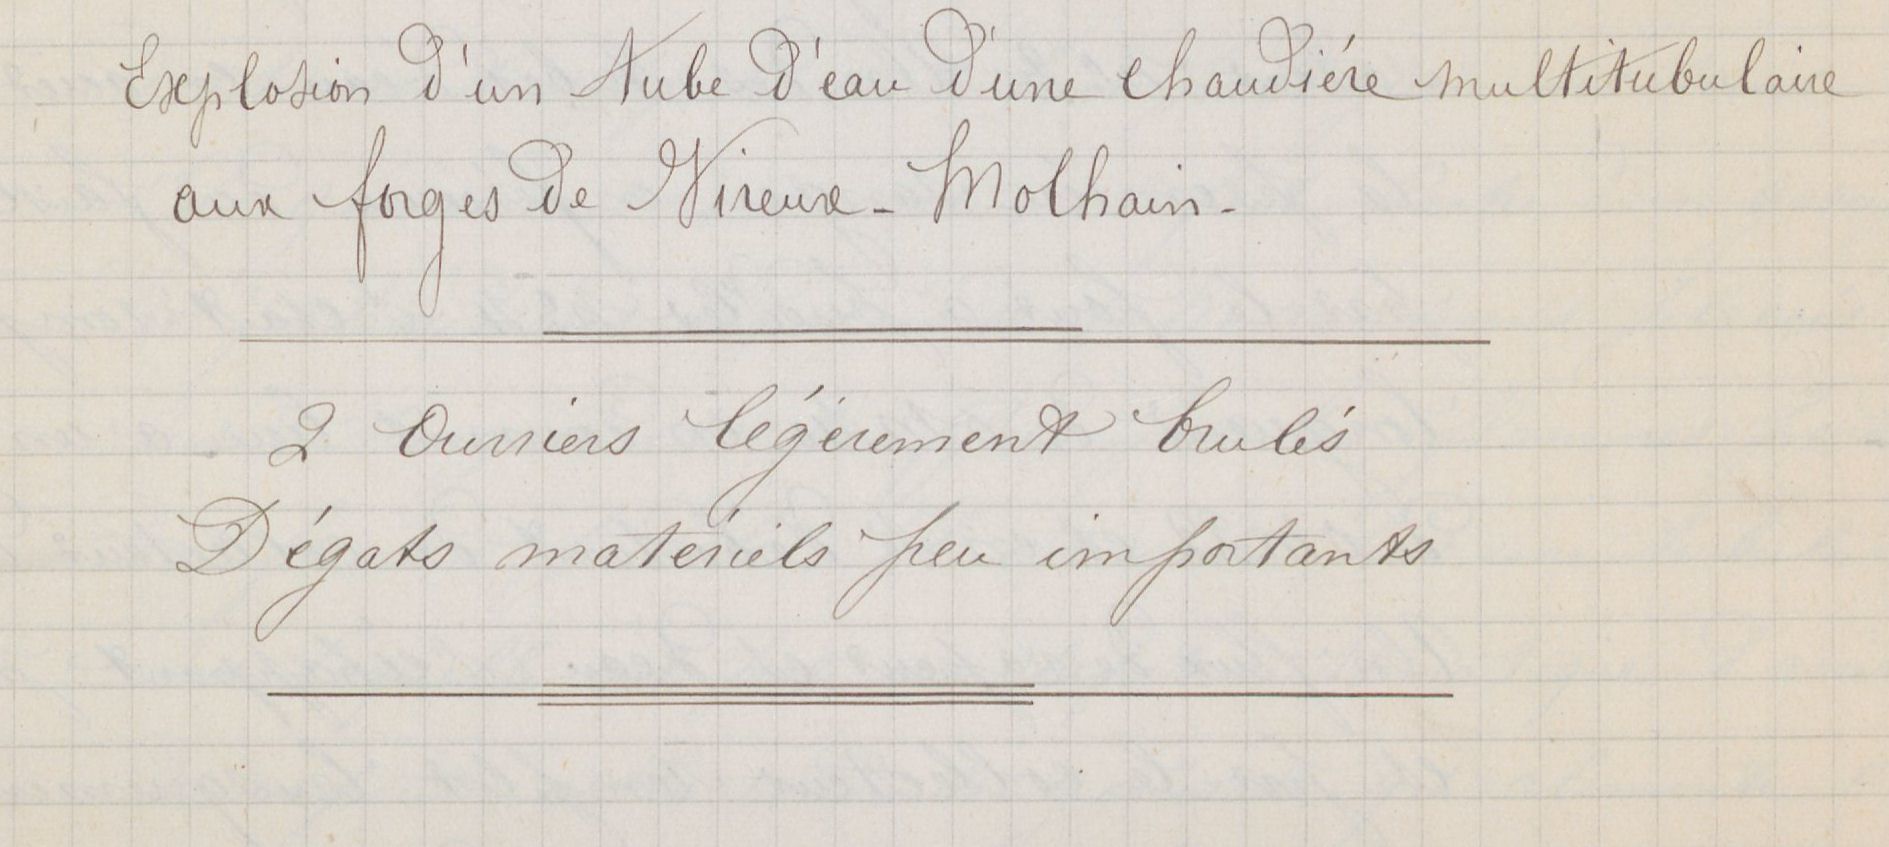 Explosion d'un tube d'eau d'une chaudiére multitubulaire
aux forges de Vireux - Molhain -
2 Ouvriers légérement brulés
Dégats matériels peu importants